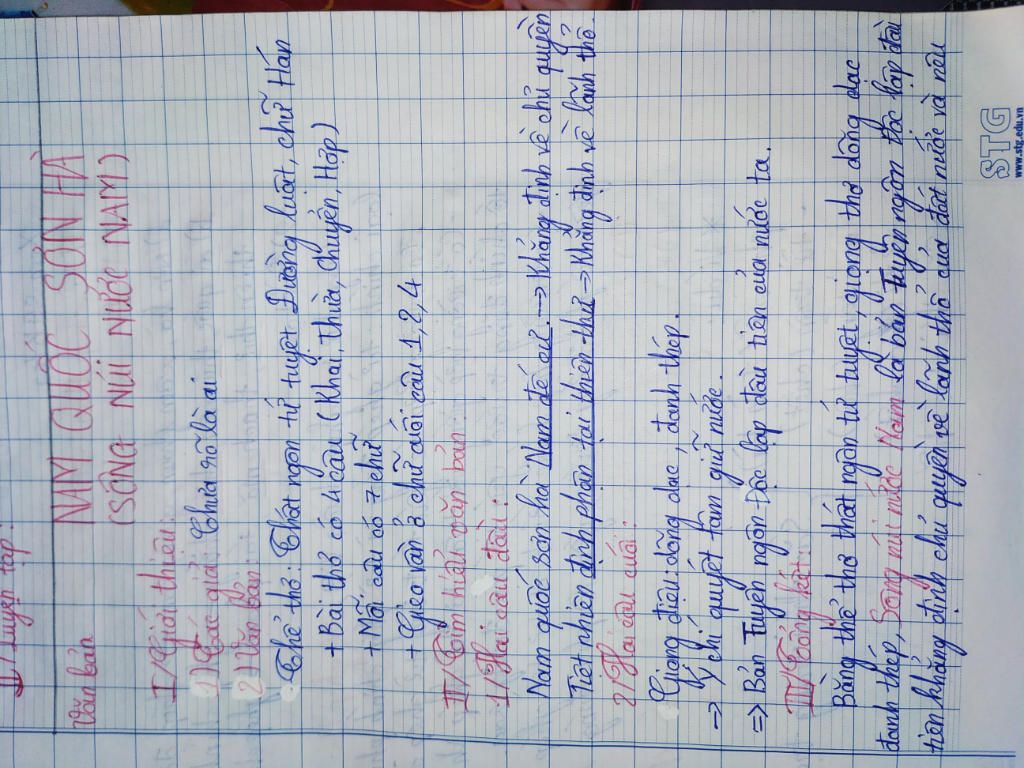 II/ Luyện tập:
Văn bản NAM QUỐC SƠN HÀ
(SÔNG NÚI NƯỚC NAM)
I/ Giới thiệu:
1) Tác giả: Chưa rõ là ai
2) Văn bản:
Thể thơ: Thất ngôn tứ tuyệt Đường luật, chữ Hán
+ Bài thơ có 4 câu (Khai, thừa, chuyển, Hợp)
+ Mỗi câu có 7 chữ
+ Gieo vần ở chữ cuối câu 1, 2, 4
II/ Tìm hiểu văn bản:
1/ Hai câu đầu:
Nam quốc sơn hà Nam đế cư. -> Khẳng định về chủ quyền
Tiệt nhiên định phận tại thiên thư -> Khẳng định về lãnh thổ.
2/ Hai câu cuối:
Giọng điệu dõng dạc, đanh thép.
-> Ý chí quyết tâm giữ nước.
=> Bản Tuyên ngôn Độc lập đầu tiên của nước ta.
III/ Tổng kết:
Bằng thể thơ thất ngôn tứ tuyệt, giọng thơ dõng dạc
đanh thép, Sông núi nước Nam là bản Tuyên ngôn Độc lập đầu
tiên khẳng định chủ quyền về lãnh thổ của đất nước và nêu
STG
www.stg.edu.vn